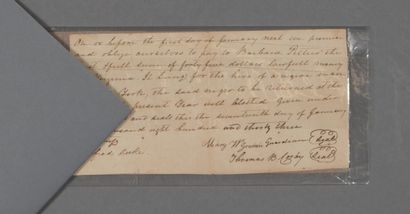 On or before the first day of January next we promise
and oblige ourselves to pay to Barbara
just sum of forty five dollars lawfull money
Virginia It being for the hire of a negro man
the said negro to be returned at the
present year well clothed Given under
and seals this the seventeenth day of January
and eight hundred and thirty three
Mary W Guardian Seal
Thomas B Cosby Seal